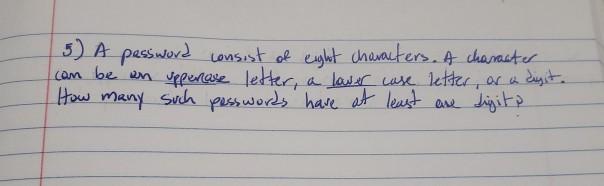 5) A password consist of eight characters. A character
can be an uppercase letter, a lower case letter, or a digit.
How many such passwords have at least one digit?